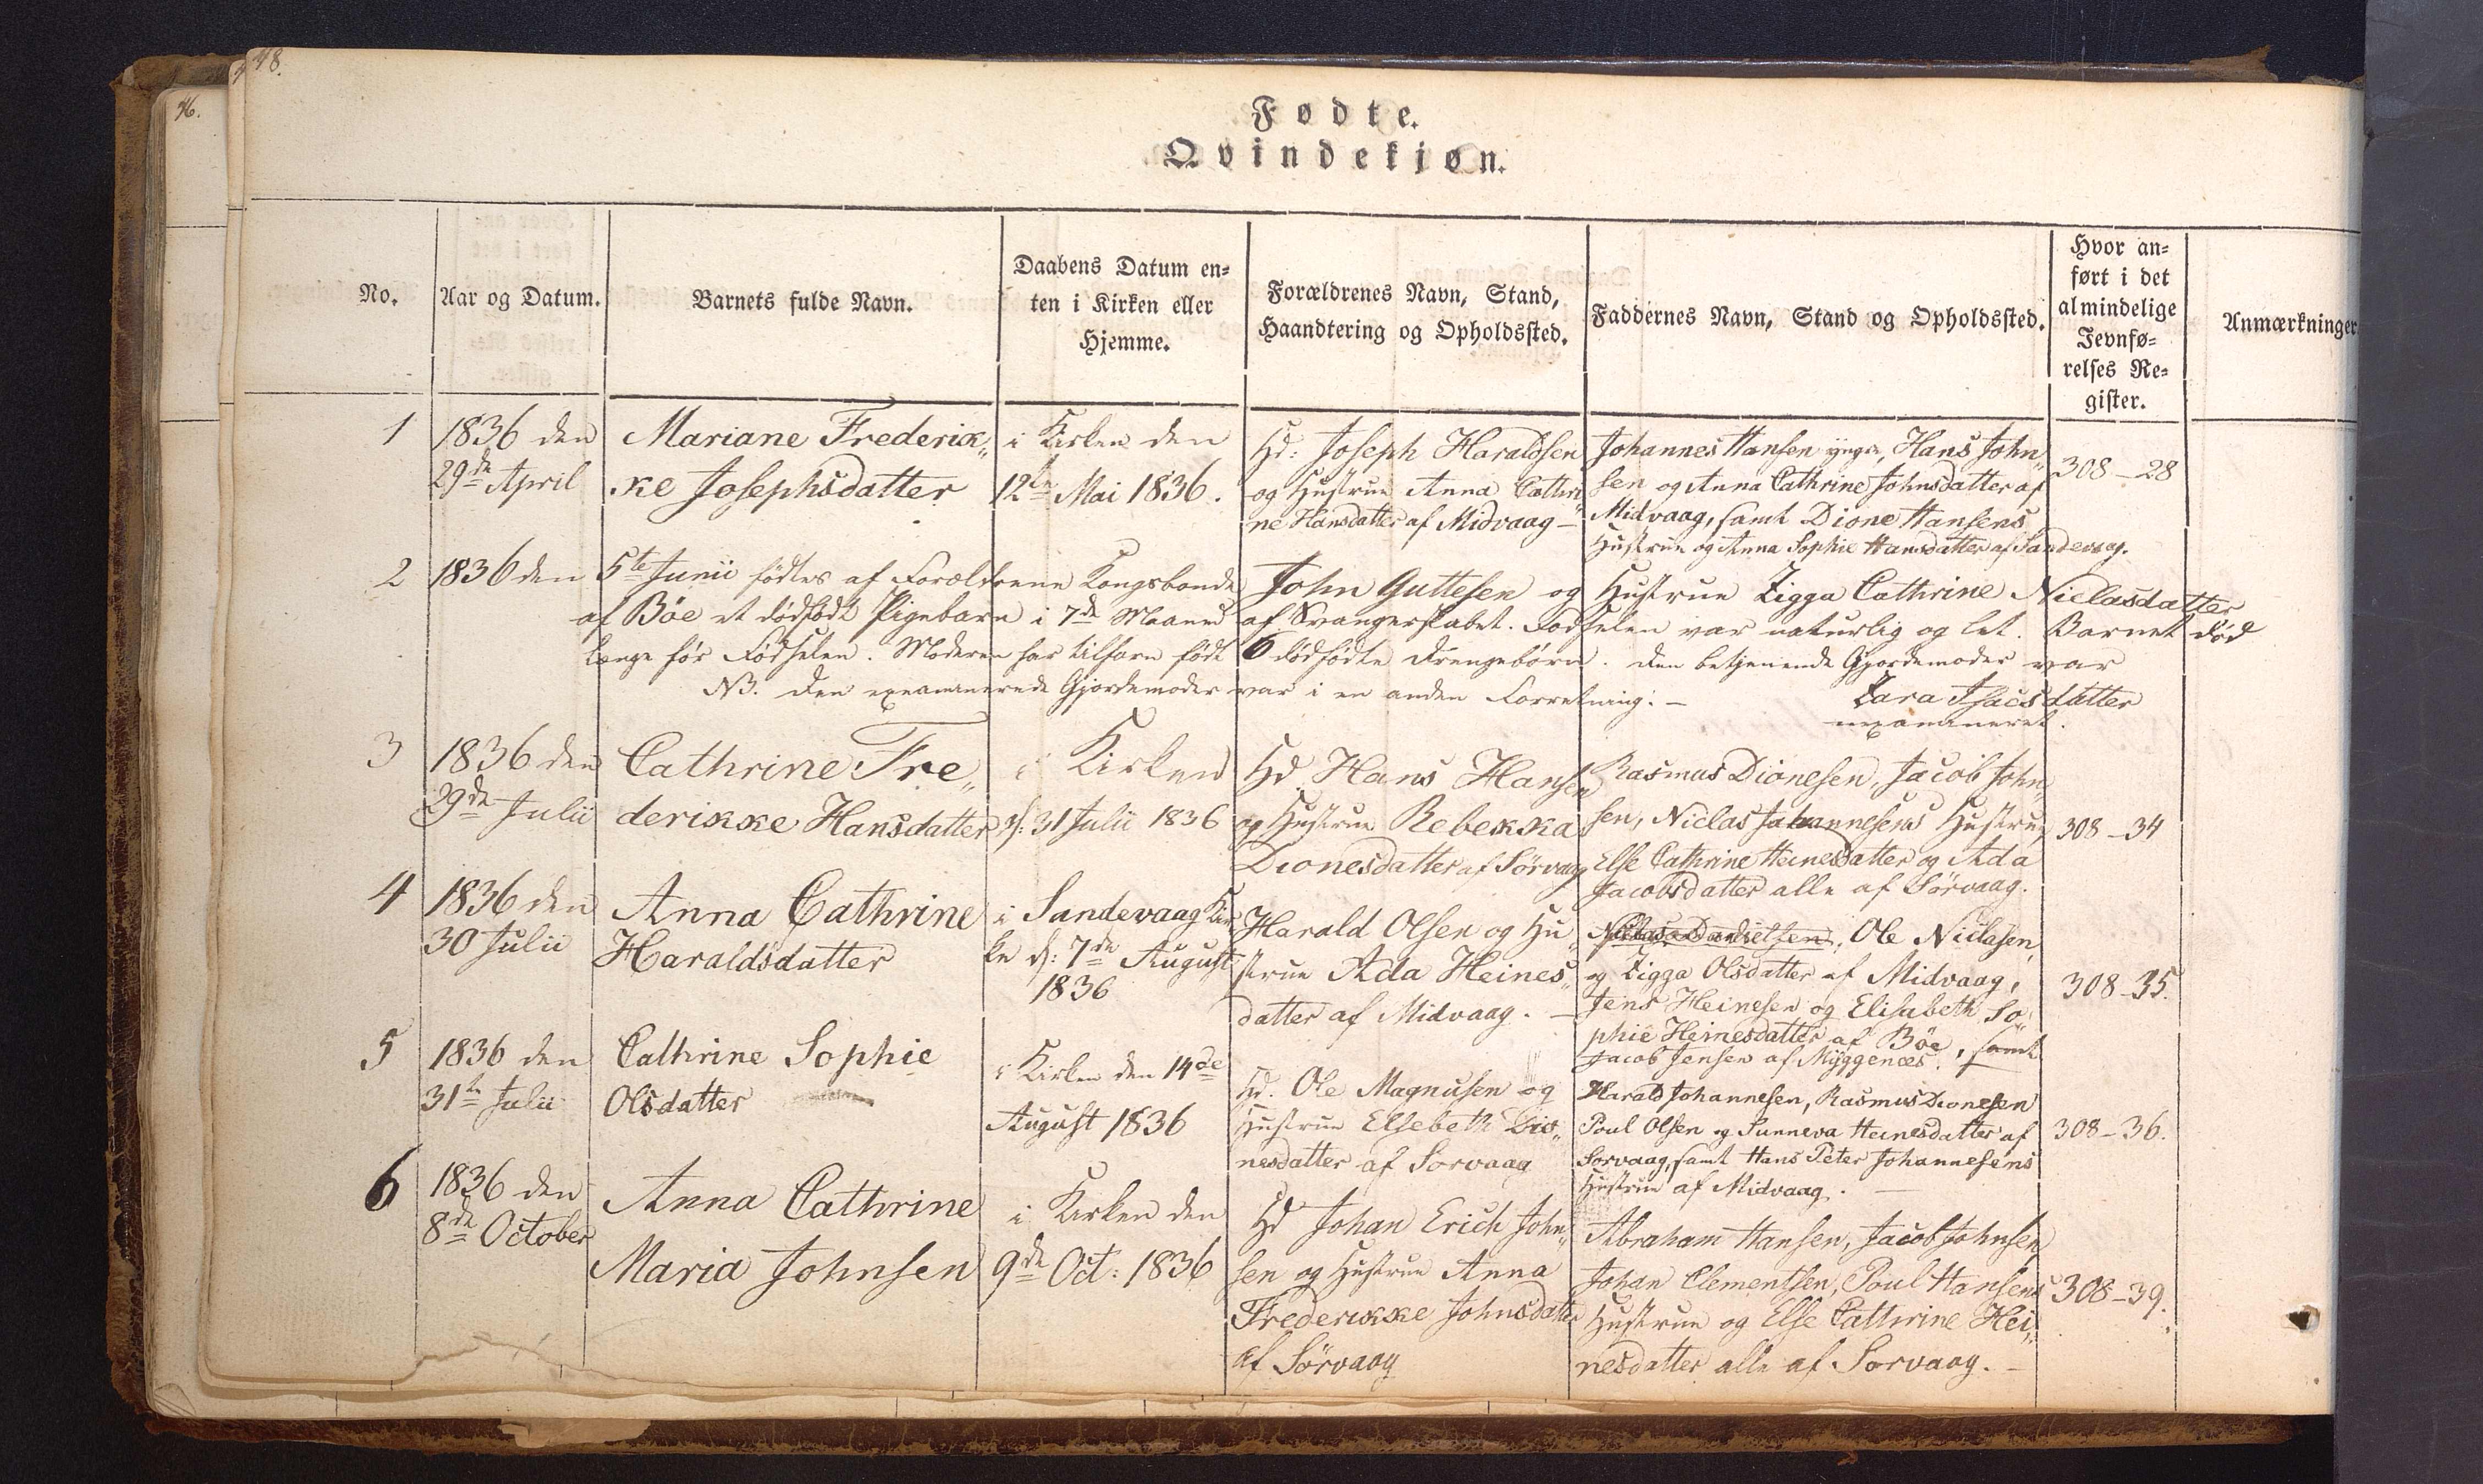 48.
46.
Fødte.
Qvindekjøn.
No.
Aar og Datum.
Barnets fulde Navn.
Daabens Datum en-
ten i Kirken eller
Hjemme.
Forældrenes Navn, Stand,
Haandtering og Opholdssted.
Faddernes Navn, Stand og Opholdssted.
Hvor an-
ført i det
almindelige
Jevnfø-
relses Re-
gister.
Anmærkninger
1
1836 den
29de April
Mariane Frederik„
ke Josephsdatter
i Kirken den
12te Mai 1836.
Hd: Joseph Haraldsen
og Hustrue Anna Cathri„
ne Hansdatter af Midvaag –
Johannes Hansen ynger, Hans John„
sen og Anna Cathrine Johnsdatter af
Midvaag, samt Dione Hansens
Hustrue og Anna Sophie Hansdatter af Sandevag.
308–28
2 1836 den 5te Junii fødtes af Forældrene Kongsbonde John Guttesen og Hustrue Zigga Cathrine Niclasdatter
af Böe et dødfødt Pigebarn i 7de Maaned af Svangerskabet. Fødselen var naturlig og let. Barnet død
længe før Fødselen. Moderen har tilforn født 6 dødfødte Drengebørn. Den betjenende Gjordemoder var
NB. Den examinerede Gjordemoder var i en anden Forretning. – Zara Isacsdatter
unexamineret.
3
1836 den
29de Julii
Cathrine Fre„
derikke Hansdatter
i Kirken
d: 31 Julii 1836
Hd Hans Hansen
og Hustrue Rebekka
Dionesdatter af Sörvaag
Rasmus Dionesen, Jacob John„
sen, Niclas Johannesens Hustrue,
Else Cathrine Heinesdatter og Ada
Jacobsdatter alle af Sörvaag.
308–34
4
1836 den
30 Julii
Anna Cathrine
Haraldsdatter
i Sandevaag Kir„
ke d: 7de August
1836
Harald Olsen og Hu„
strue Ada Heines„
datter af Midvaag. –
Ole Niclasen,
og Zigga Olsdatter af Midvaag,
Jens Heinesen og Elisabeth So„
phie Heinesdatter af Böe, samt
Jacob Jensen af Myggenæs.
308–35.
5
1836 den
31te Julii
Cathrine Sophie
Olsdatter
i Kirken den 14de
August 1836
Hd. Ole Magnusen og
Hustrue Elsebeth Dio„
nesdatter af Sorvaag
Harald Johannesen, Rasmus Dionesen
Poul Olsen og Sunneva Heinesdatter af
Sorvaag, samt Hans Peter Johannesens
Hustrue af Midvaag. –
308–36.
6
1836 den
8de October
Anna Cathrine
Maria Johnsen
i Kirken den
9de Oct: 1836
Hd Johan Erich John„
sen og Hustrue Anna
Frederikke Johnsdatter
af Sörvaag
Abraham Hansen, Jacob Johnsen
Johan Clementsen, Poul Hansens
Hustrue og Else Cathrine Hei„
nesdatter alle af Sorvaag. –
308–39.